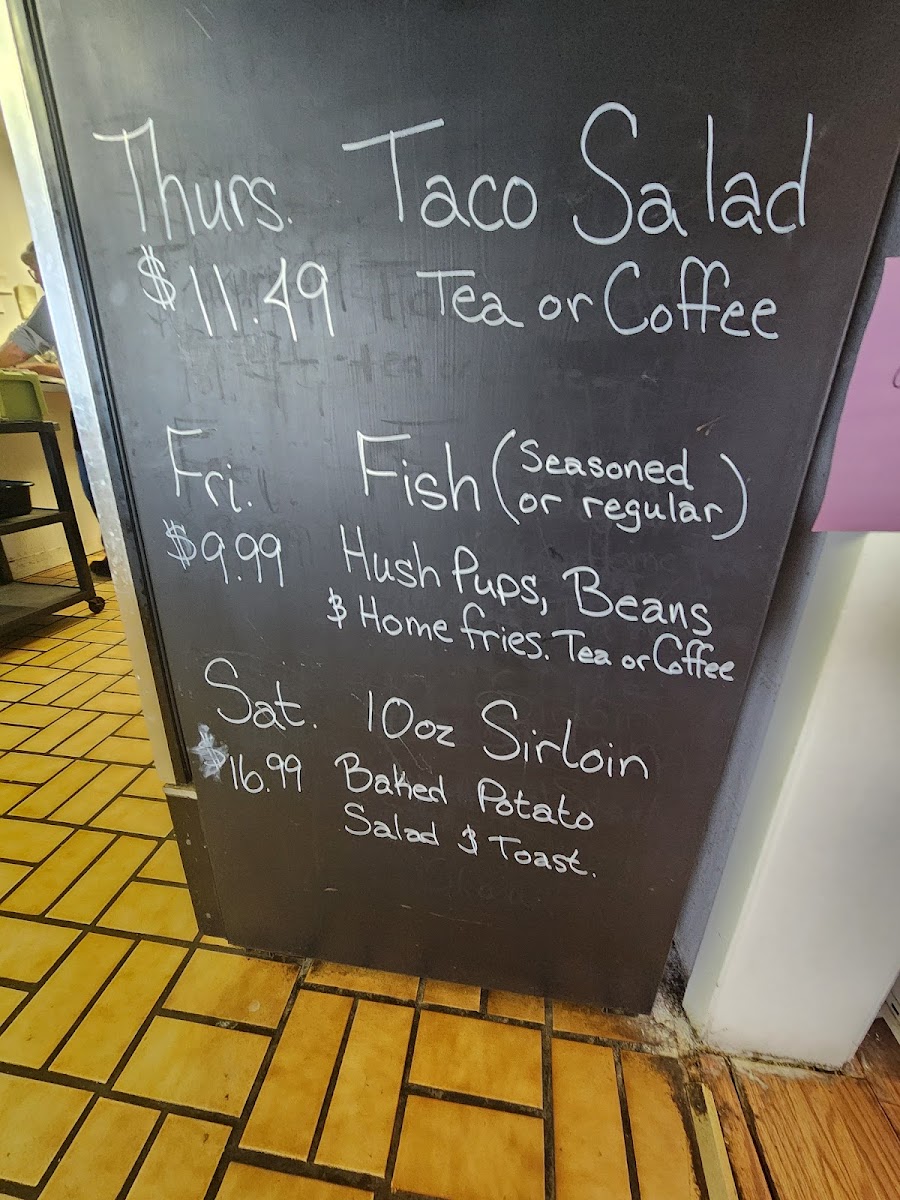 Thurs. Taco Salad
$11.49 Tea or Coffee
Fri. Fish (Seasoned
or regular)
$9.99 Hush Pups, Beans
& Home fries. Tea or Coffee
Sat. 10oz Sirloin
$16.99 Baked Potato
Salad & Toast.